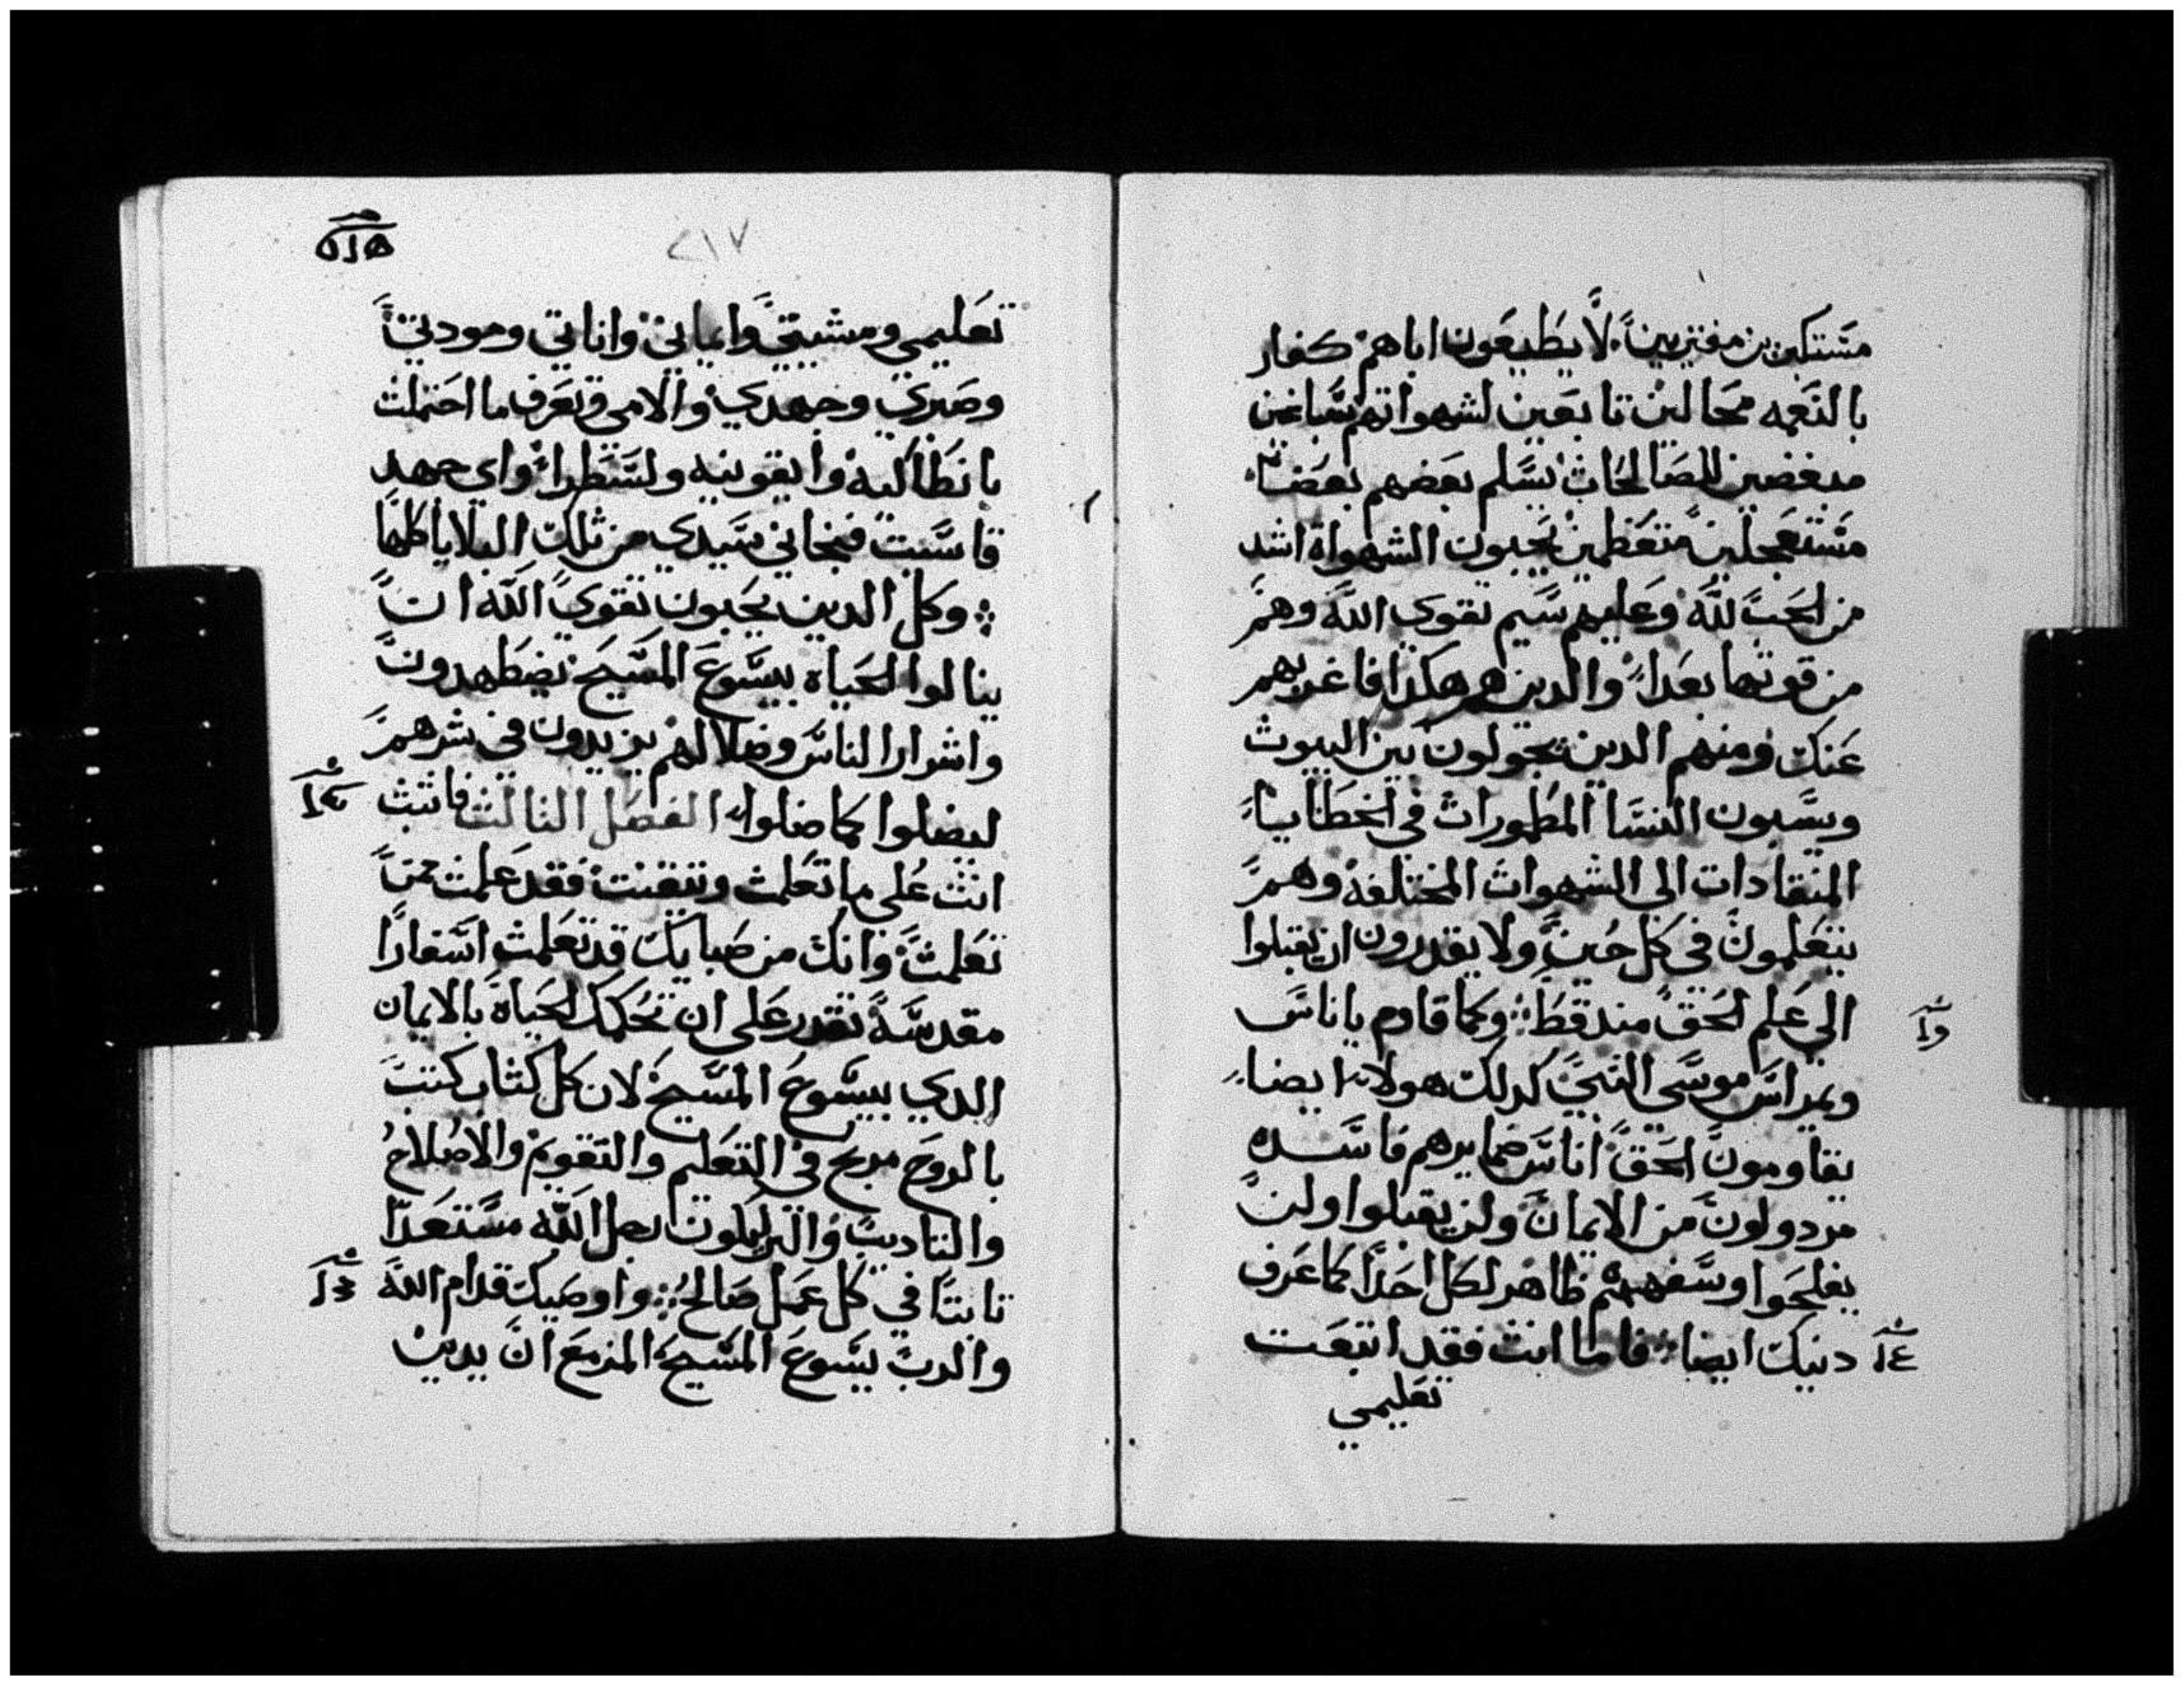 مستكبرين مفتريين لا يطيعون اباهم كفار
بالنعمه محالين تابعين لشهواتهم سباعين
مبغضين للصالحات يسلم بعضهم بعضا
مستعجلين متعظمين يحبون الشهواة اشد
من الحب لله وعليهم سيم تقوى الله وهم
من قوتها بعدا والدين هم هكدا فاغربهم
عنك ومنهم الدين يجولون بين البيوت
ويسبون النسا المطمورات في الخطايا
المنقادات الى الشهوات المختلفه وهم
يتعلمون في كل حين ولا يقدرون ان يقبلوا
الي علم الحق مند قط وكما قاوم ياناس
ويمراس موسى النبي كدلك هولا ايضا
يقاومون الحق اناس ضمايرهم فاسده
مردولون من الايمان ولن يقبلوا ولن
يفلحوا وسفههم ظاهر لكل احدا كما عرف
دنيك ايضا فاما انت فقد اتبعت
تعليمي
٢١٧
تعليمي ومشيتي وايماني واناتي ومودتي
وصبري وجهدي والامي وتعرف ما احتملت
بانطاكيه وايقونيه ولسطرا واي جهد
قاسيت فنجاني سيدي من تلك البلايا كلها
وكل الدين يحبون تقوى الله ان
ينالوا الحياه بيسوع المسيح يضطهدون
واشرار الناس وضلالهم يزيدون في شرهم
ليضلوا كما ضلوا الفصل التالت فاتبت
انت على ما تعلمت وتيقنت فقد علمت ممن
تعلمت وانك من صبايك قد تعلمت اسفارا
مقدسة تقدر على ان تحكمك الحياة بالايمان
الدي بيسوع المسيح لان كل كتاب كتب
بالروح مربح في التعليم والتقويم والاصلاح
والتاديب والبر ليكون رجل الله مستعدا
تابتا في كل عمل صالح واوصيك قدام الله
والرب يسوع المسيح المزمع ان يدين